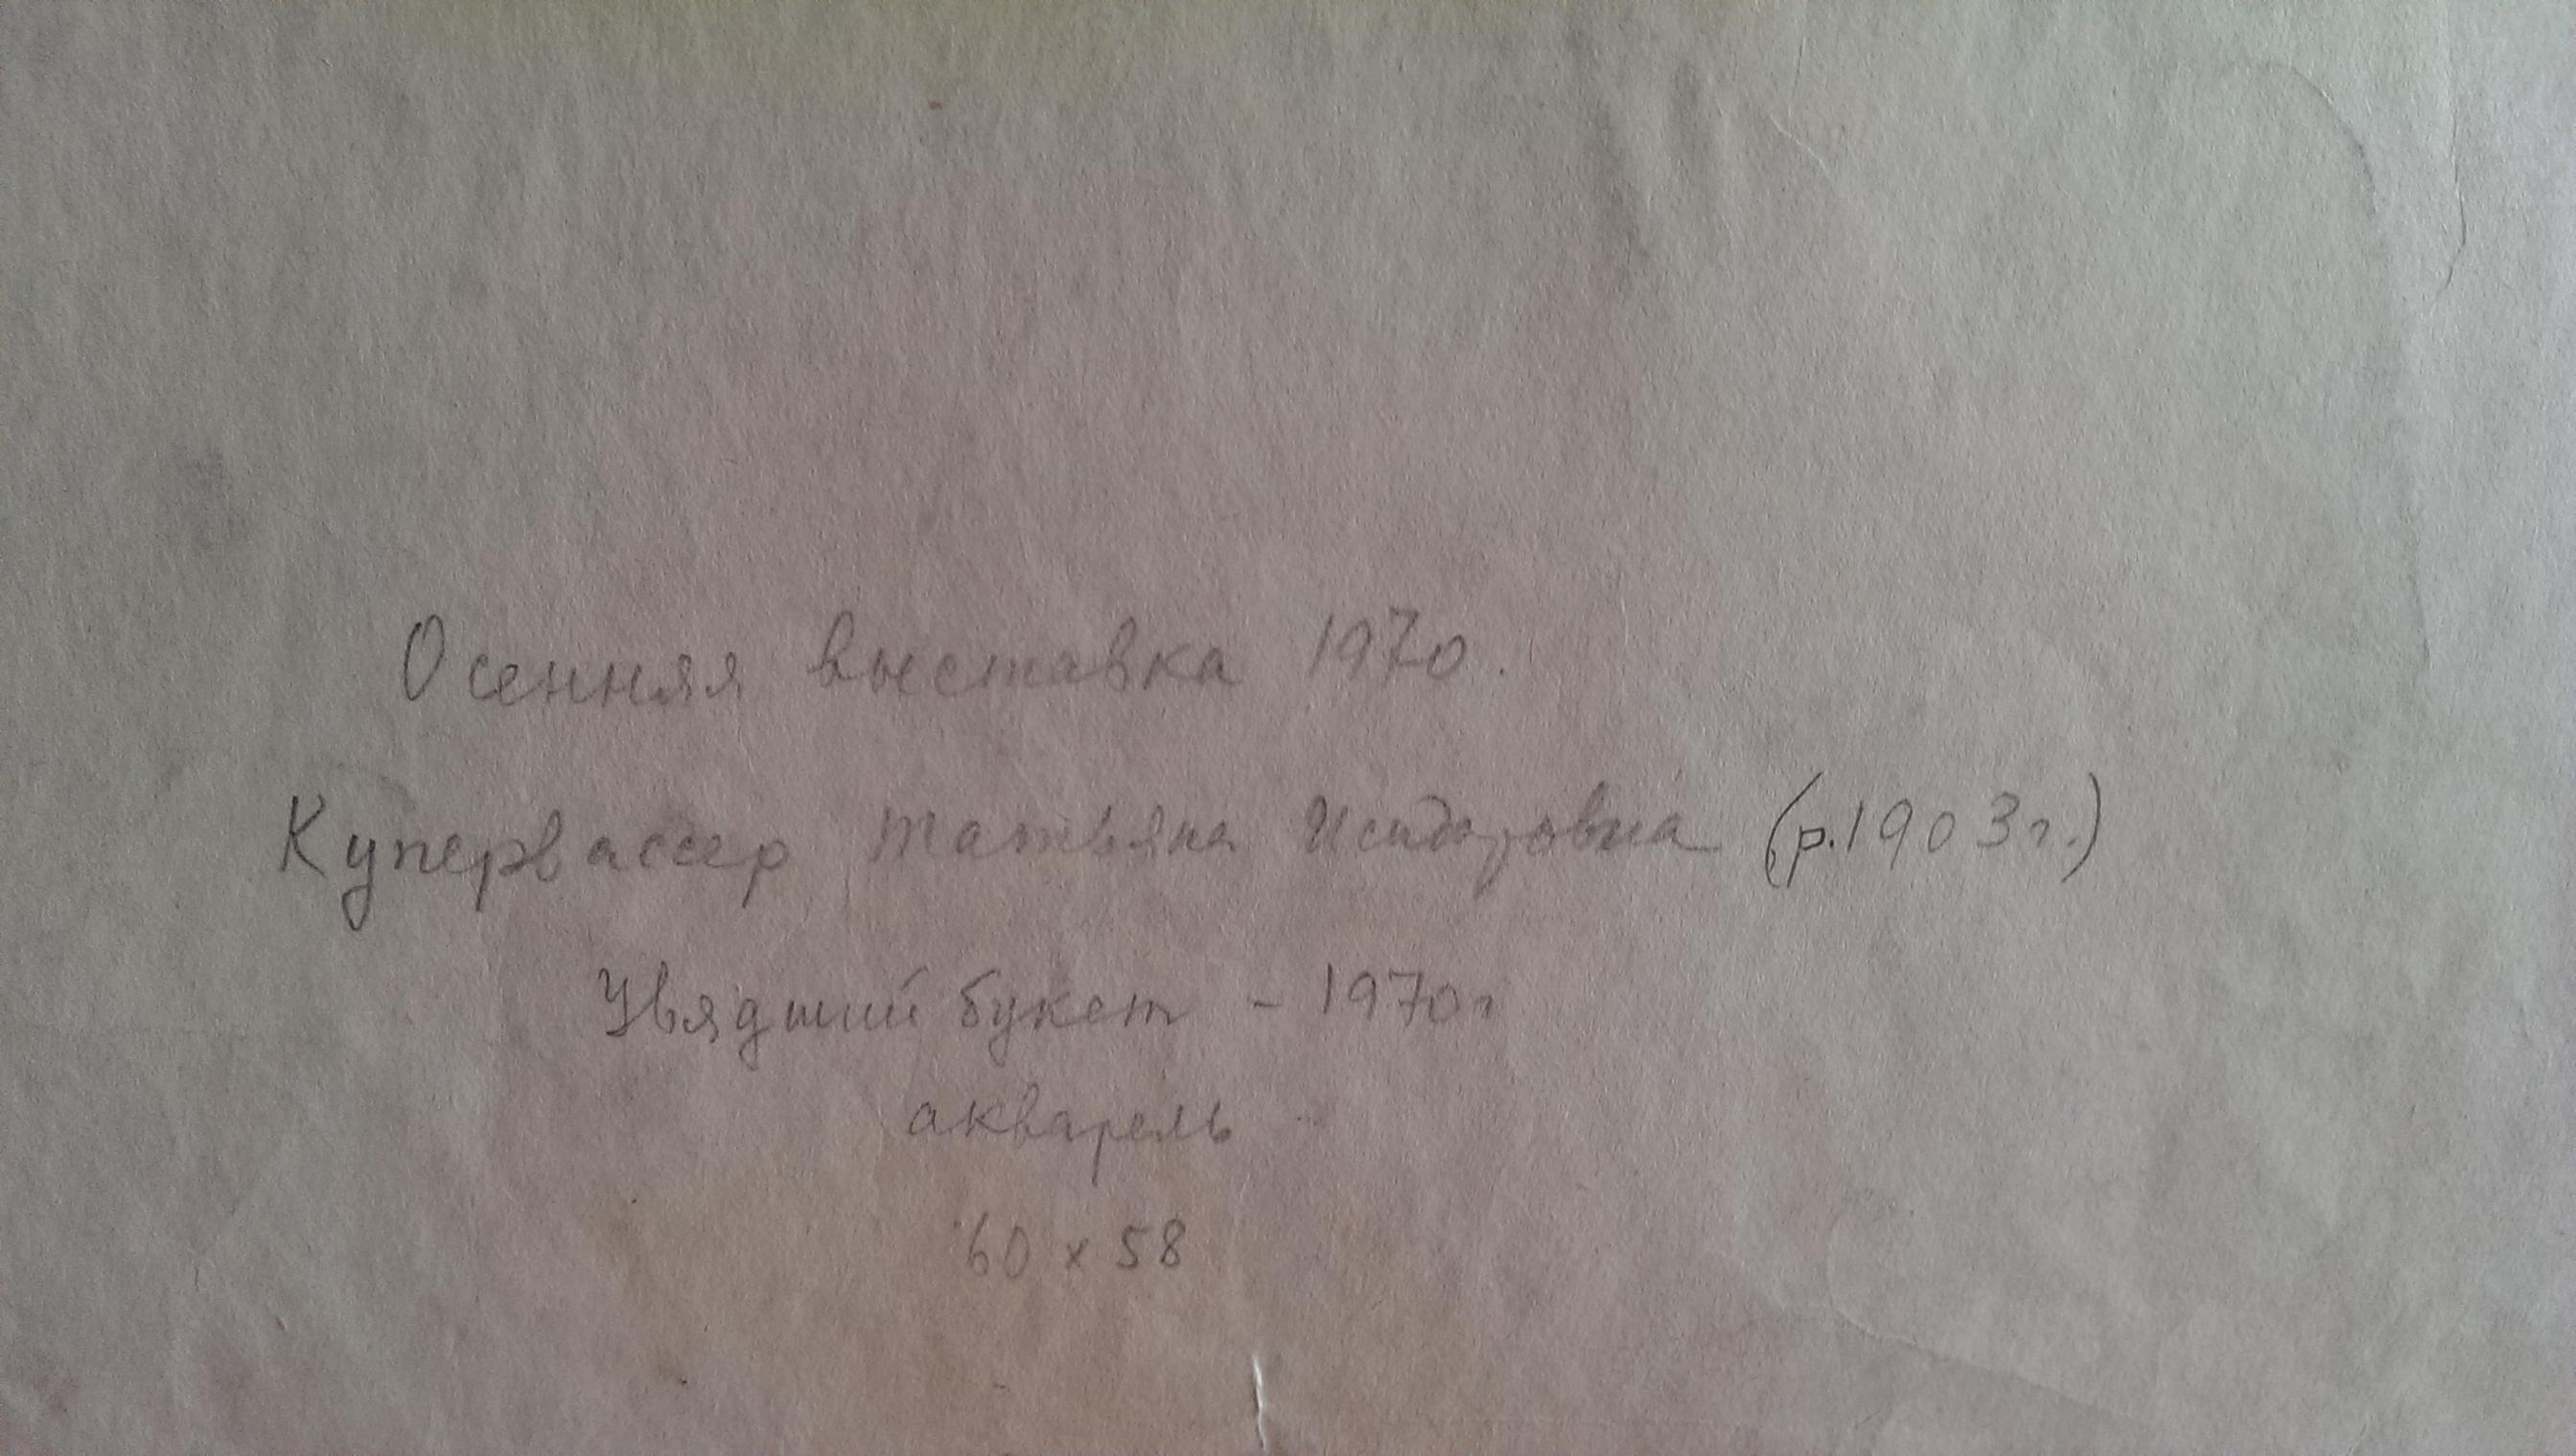 Осенняя выставка 1970.
Купервассер Татьяна Исидоровна (р.1903г.)
Увядший букет - 1970г
акварель
60 x 58